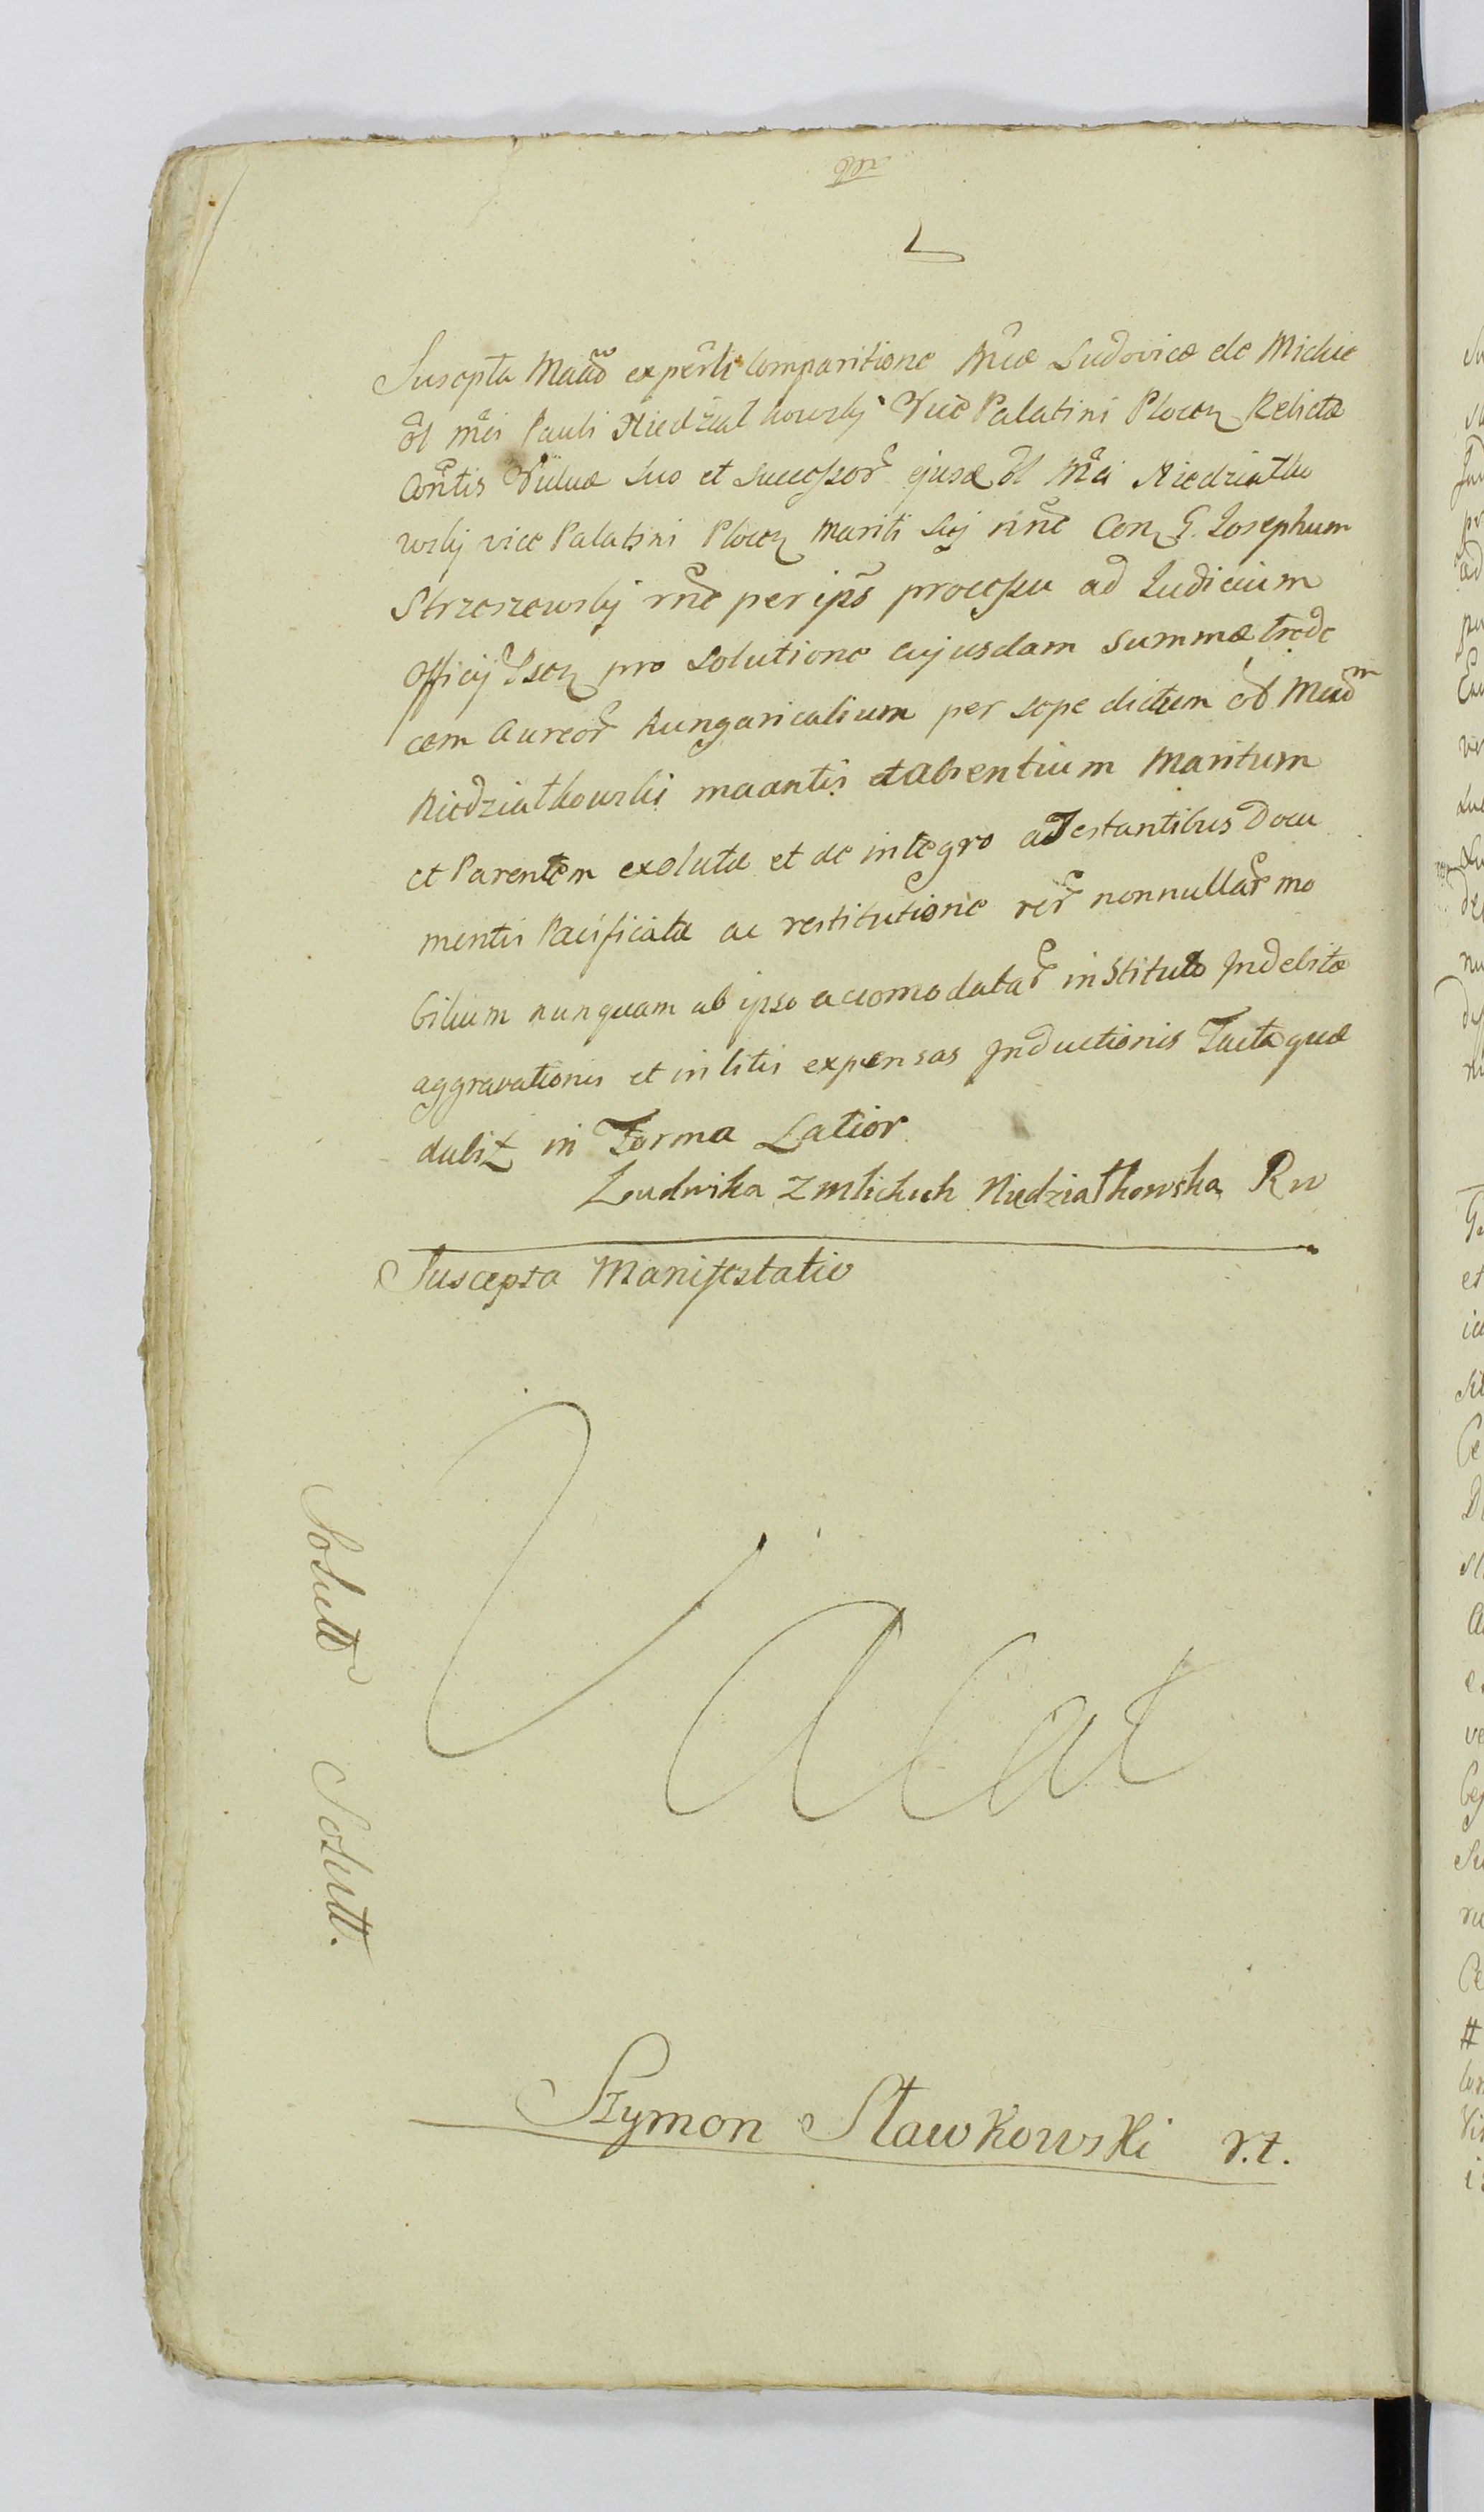 Suscepta Maão experlti Comparitione Mcae Ludovicae de Michie
ol mci Pauli Niedziałkowsky Vice Palatini Plocen Relictae
Contis Viduae suo et Successor ejusd ol Mci Niedziałko
wsky vice Palatini Plocen Mariti sui nne Con G. Josephum
Strzeszewsky rne per ips processu ad Judicium
Officij pro Solutione cujusdam Summae trede
cem Aureor Hungaricalium per sepe dictum ol
Niedziałkowski maantis et absentium Maritum
et Parentem exoluta et de integro adtestantibus Docu
mentis Pacificata ac restitutione rer nonnullar mo
bilium nunquam ab ipso accomodatar instituto Indebitae
aggravationis et in litis expensas Inductionis Factaque
dabit in Forma Latior
Ludwika Niedziałkowska Rw
Suscepta Manifestatio
Vacat
Solutt
Solutt.
Szymon Sławkowski r.t.